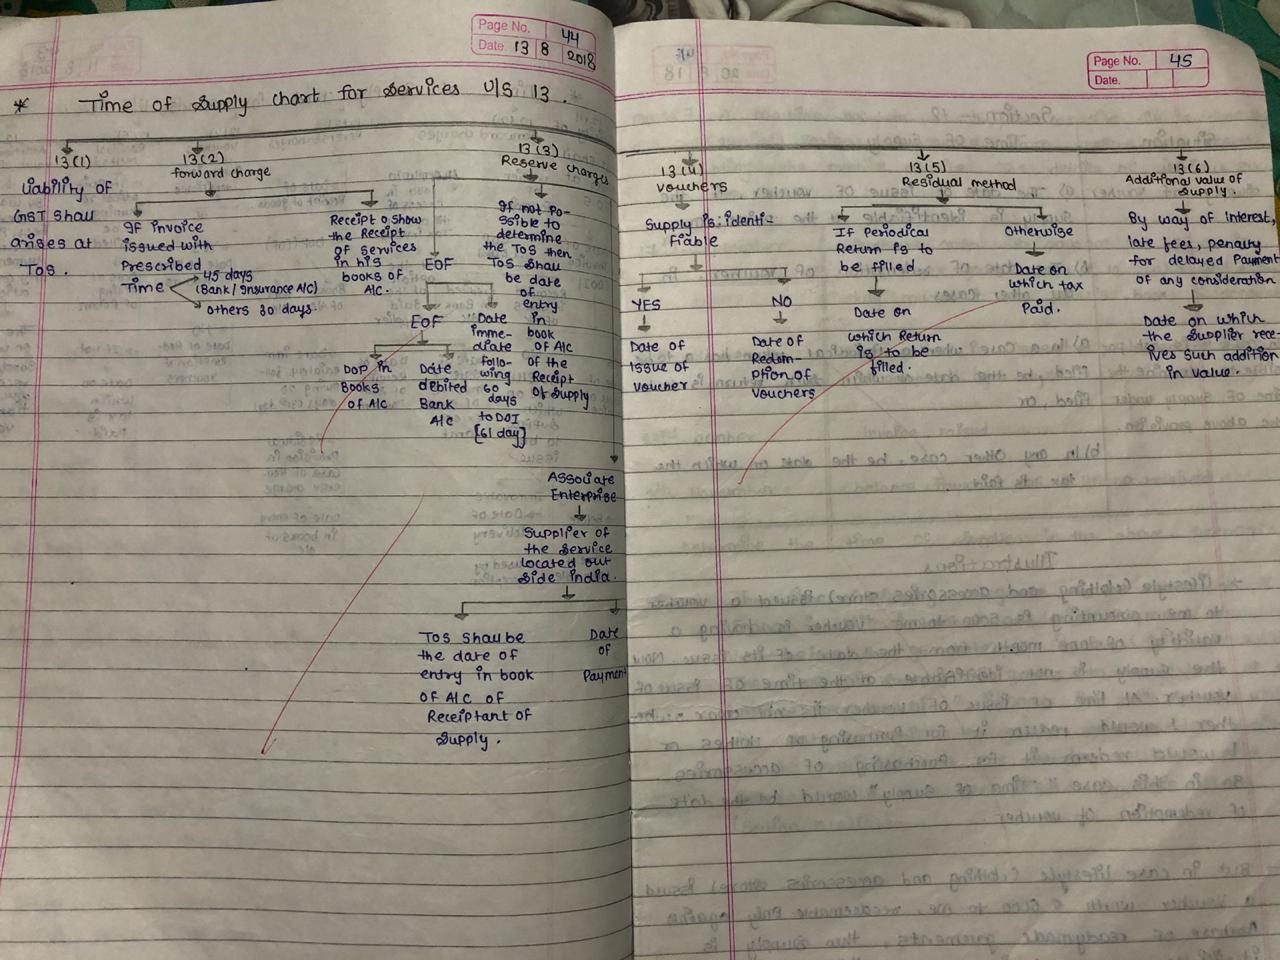 Page No. 44
Date. 13 8 2018
* Time of Supply chart for Services U/S 13.
13(1)
Liability of
GST Shall
arises at
TOS.
13(2)
forward charge
If invoice
issued with
Prescribed
Time
45 days
(Bank / Insurance A/C)
Others 30 days.
Receipt o Show
the Receipt
of services
in his
books of
A/C.
13(3)
Reserve charges
EOF
EOF
DOP in
Books
of A/C
Date
debited
Bank
A/C
Date
imme-
diate
follo-
wing
60
days
to DOI
[61 day]
If not Po-
ssible to
determine
the TOS then
TOS Shall
be date
of
entry
in
book
of A/C
of the
Receipt
of Supply
Associate
Enterprise
Supplier of
the Service
located out
Side india.
TOS Shall be
the date of
entry in book
of A/C of
Receiptant of
Supply.
Date
of
Payment
Page No. 45
Date.
13(4)
Vouchers
Supply is identi-
fiable
YES
Date of
Issue of
Voucher
NO
Date of
Redem-
ption of
Vouchers
13(5)
Residual method
If Periodical
Return is to
be filled
Date on
which Return
is to be
filled.
Otherwise
Date on
which tax
Paid.
13(6)
Additional value of
Supply.
By way of interest,
late fees, penalty
for delayed Payment
of any consideration
Date on which
the Supplier rece-
ives such addition
in value.